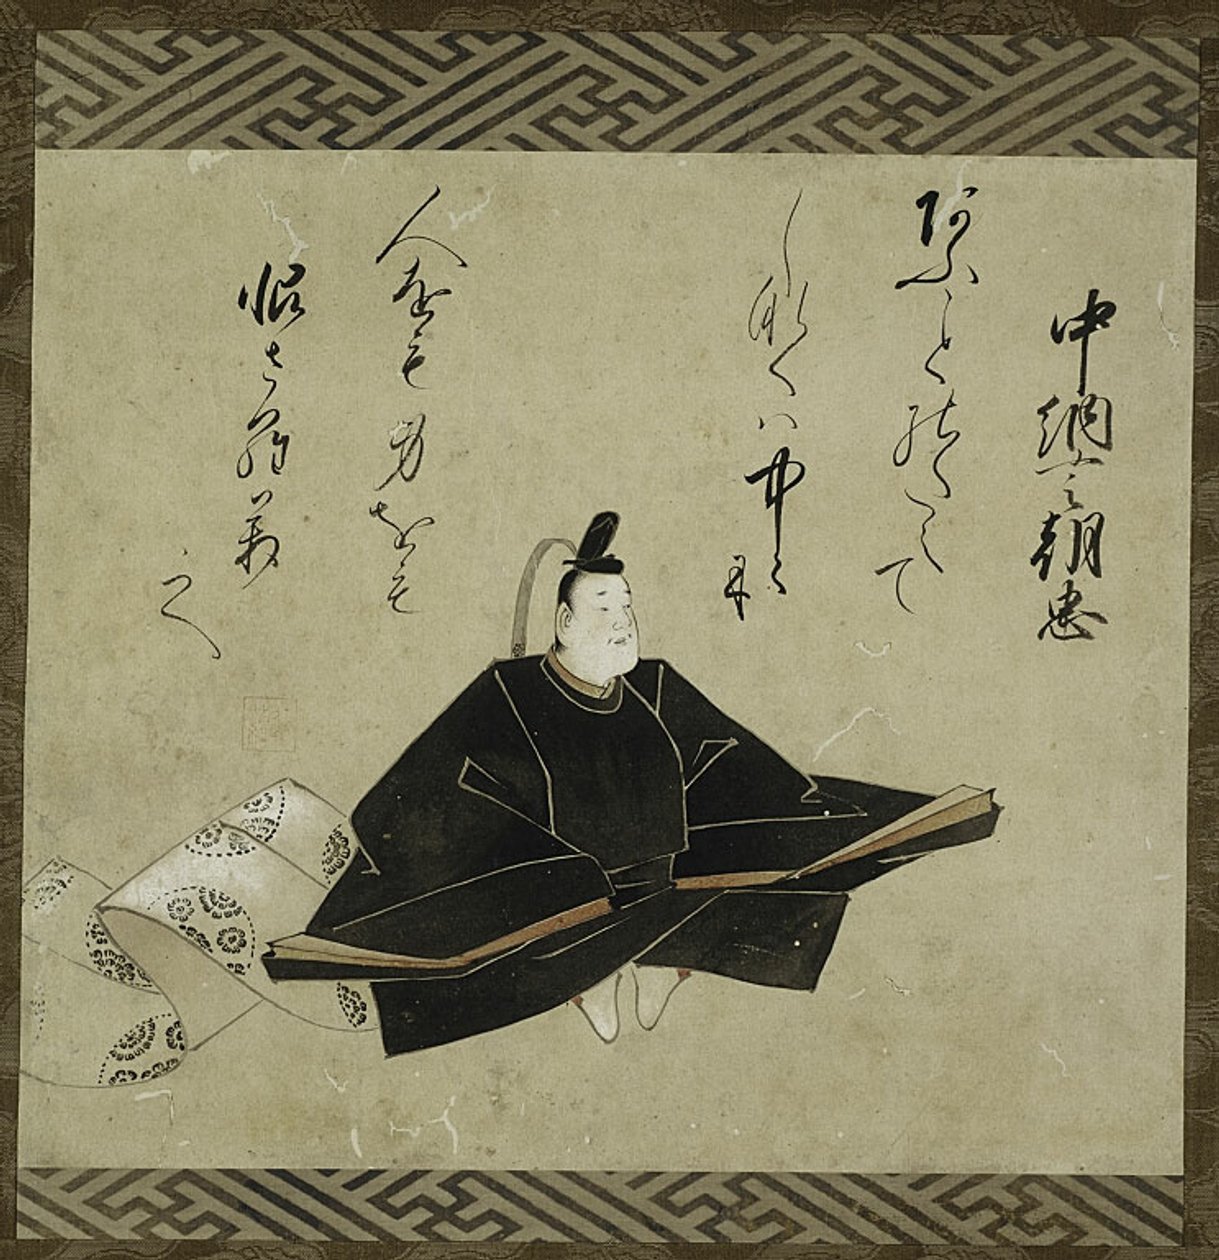 中納言朝忠
あふことのたえて
しなくハ中〻
に
人をも身をも
恨さらま
し